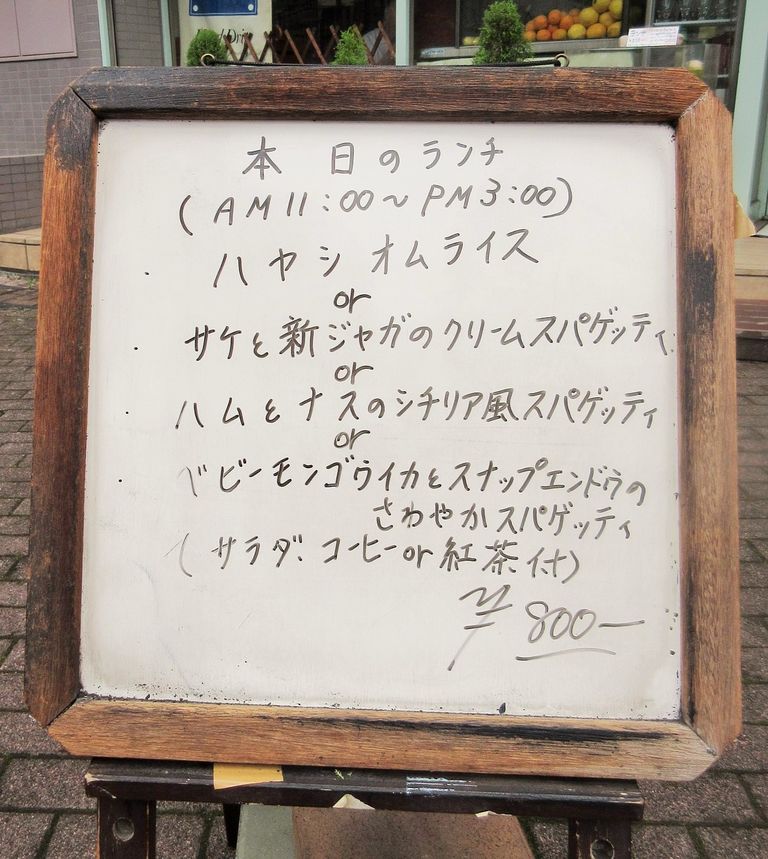 本日のランチ
(AM11:00~PM3:00)
・ハヤシオムライス
or
・サケと新ジャガのクリームスパゲッティ
or
・ハムとナスのシチリア風スパゲッティ
or
・ベビーモンゴウイカとスナップエンドウの
さわやかスパゲッティ
(サラダ、コーヒーor紅茶付)
¥800―